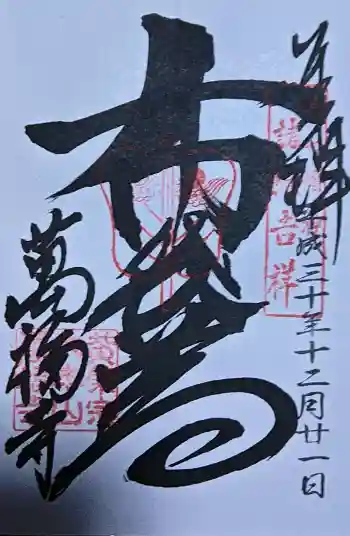 奉拝
平成三十年十二月廿一日
吉祥
布袋尊
萬福寺